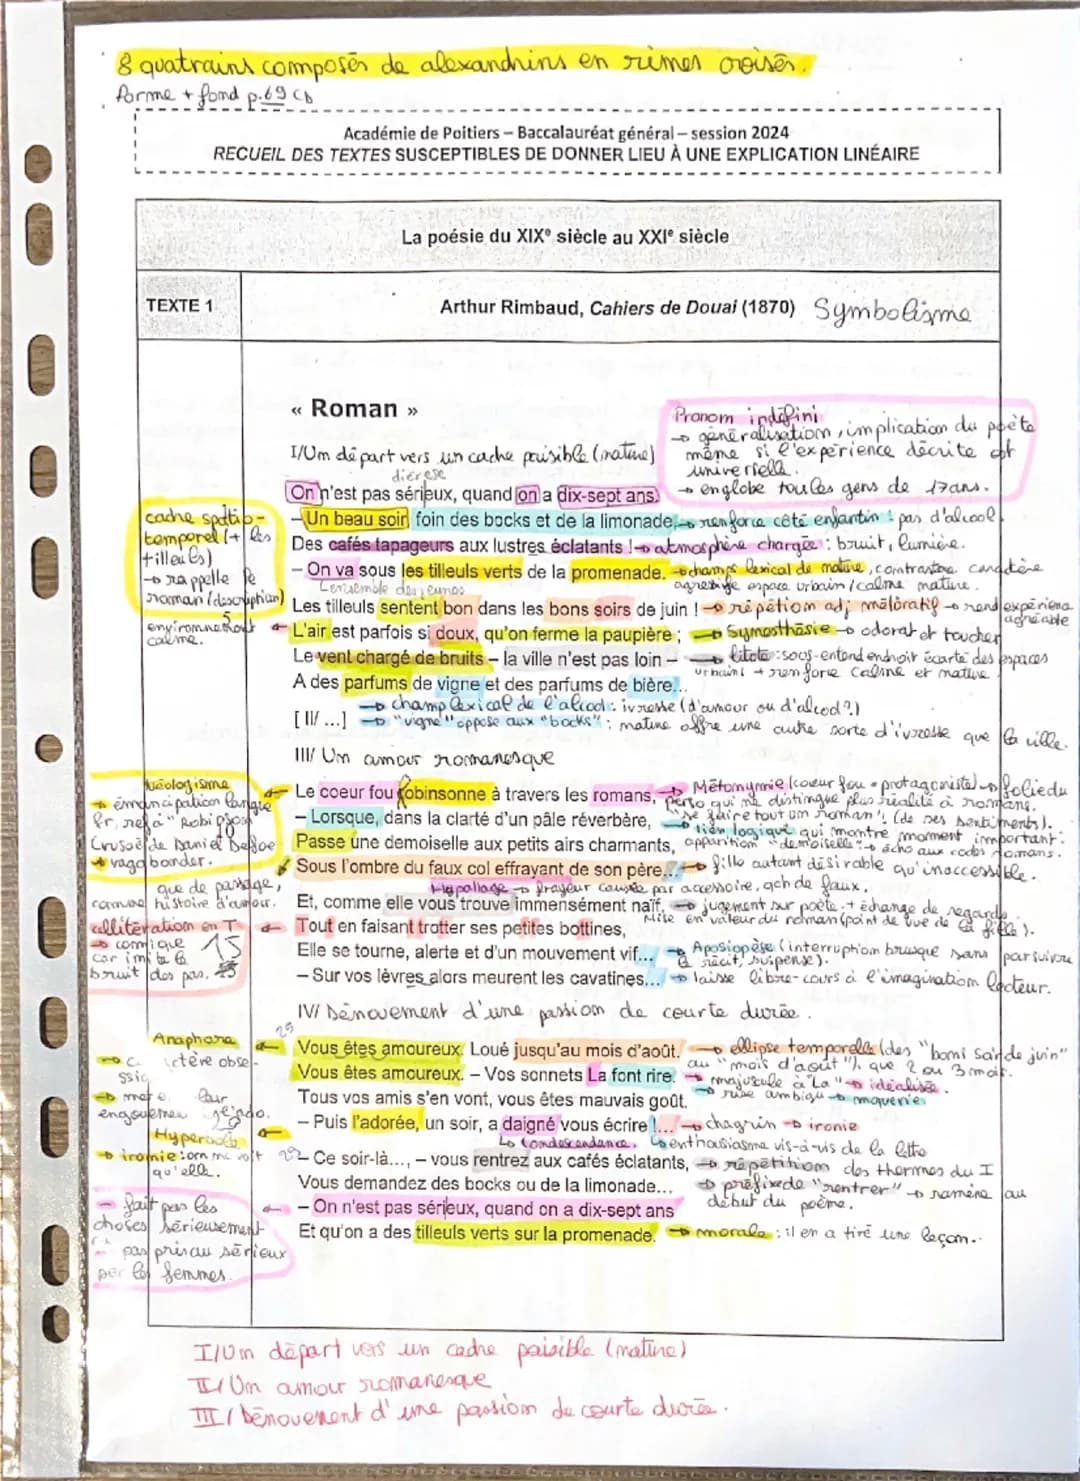 8 quatrains composés de alexandrins en rimes croisés.
Forme + fond p.69
Académie de Poitiers – Baccalauréat général – session 2024
RECUEIL DES TEXTES SUSCEPTIBLES DE DONNER LIEU À UNE EXPLICATION LINÉAIRE
La poésie du XIXe siècle au XXIe siècle
TEXTE 1
Arthur Rimbaud, Cahiers de Douai (1870) Symbolisme
« Roman »
Pronom indéfini
→ généralisation, implication du poète
même si l'expérience décrite est
universelle.
→ englobe tous les gens de 17 ans.
I/Un départ vers un cadre paisible (nature)
diérèse
On n'est pas sérieux, quand on a dix-sept ans.
– Un beau soir, foin des bocks et de la limonade, → renforce côté enfantin : pas d'alcool
Des cafés tapageurs aux lustres éclatants ! → atmosphère chargée : bruit, lumière.
– On va sous les tilleuls verts de la promenade. → champs lexical de nature, contraste caractère
L'ensemble des jeunes
espace urbain / calme nature.
Les tilleuls sentent bon dans les bons soirs de juin ! → répétition adj mélioratif → rend expérience
agréable
L'air est parfois si doux, qu'on ferme la paupière ; → Synesthésie → odorat et toucher
Le vent chargé de bruits – la ville n'est pas loin – → litote : sous-entend endroit écarté des espaces
urbains → renforce calme et nature
A des parfums de vigne et des parfums de bière...
→ champ lexical de l'alcool : ivresse (d'amour ou d'alcool ?)
[ II/ ...] → "vigne" oppose aux "bocks" : nature offre une autre sorte d'ivresse que la ville.
cadre spatio-
temporel (+ les
tilleuls)
→ rappelle le
roman (description)
environnement
calme.
III/ Un amour romanesque
Le coeur fou robinsonne à travers les romans, → Métonymie (coeur fou = protagoniste) → folie du
perso qui ne distingue plus réalité à romans.
"se faire tout un roman" (de ses sentiments).
– Lorsque, dans la clarté d'un pâle réverbère, → lien logique qui montre moment important :
Passe une demoiselle aux petits airs charmants, apparition "demoiselle" → écho aux codes romans.
Sous l'ombre du faux col effrayant de son père... → fille autant désirable qu'inaccessible.
Hypallage → frayeur causée par accessoire,
Et, comme elle vous trouve immensément naïf, → jugement sur poète + échange de regards
Mise en valeur du roman (point de vue de la fille).
Tout en faisant trotter ses petites bottines,
Elle se tourne, alerte et d'un mouvement vif... → Aposiopèse (interruption brusque sans poursuivre
le récit, suspense).
– Sur vos lèvres alors meurent les cavatines... → laisse libre-cours à l'imagination lecteur.
Néologisme
→ émancipation langue
fr, ref à "Robinson
Crusoé" de Daniel Defoe
→ vagabonder.
que de passage,
comme histoire d'amour.
allitération en T
→ comique
car imite le
bruit des pas.
15
IV/ Dénouement d'une passion de courte durée.
25
Vous êtes amoureux. Loué jusqu'au mois d'août. → ellipse temporelle (des "bons soirs de juin"
au "mois d'août"), que 2 ou 3 mois.
Vous êtes amoureux. – Vos sonnets La font rire. → majuscule à "La" → idéalisée.
→ rire ambigu → moquerie
Tous vos amis s'en vont, vous êtes mauvais goût.
– Puis l'adorée, un soir, a daigné vous écrire !... → chagrin → ironie
↳ condescendance. ↳ enthousiasme vis-à-vis de la lettre
29
– Ce soir-là..., – vous rentrez aux cafés éclatants, → répétitions des thermes du I
Vous demandez des bocks ou de la limonade... → préfixe de "rentrer" → ramène au
début du poème.
– On n'est pas sérieux, quand on a dix-sept ans
Et qu'on a des tilleuls verts sur la promenade. → morale : il en a tiré une leçon.
Anaphore
Hyperbole
→ ironie : on ne voit
qu'elle.
– fait pas les
choses sérieusement
– pas pris au sérieux
par les femmes.
I/Un départ vers un cadre paisible (nature)
II/ Un amour romanesque
III/ Dénouement d'une passion de courte durée.